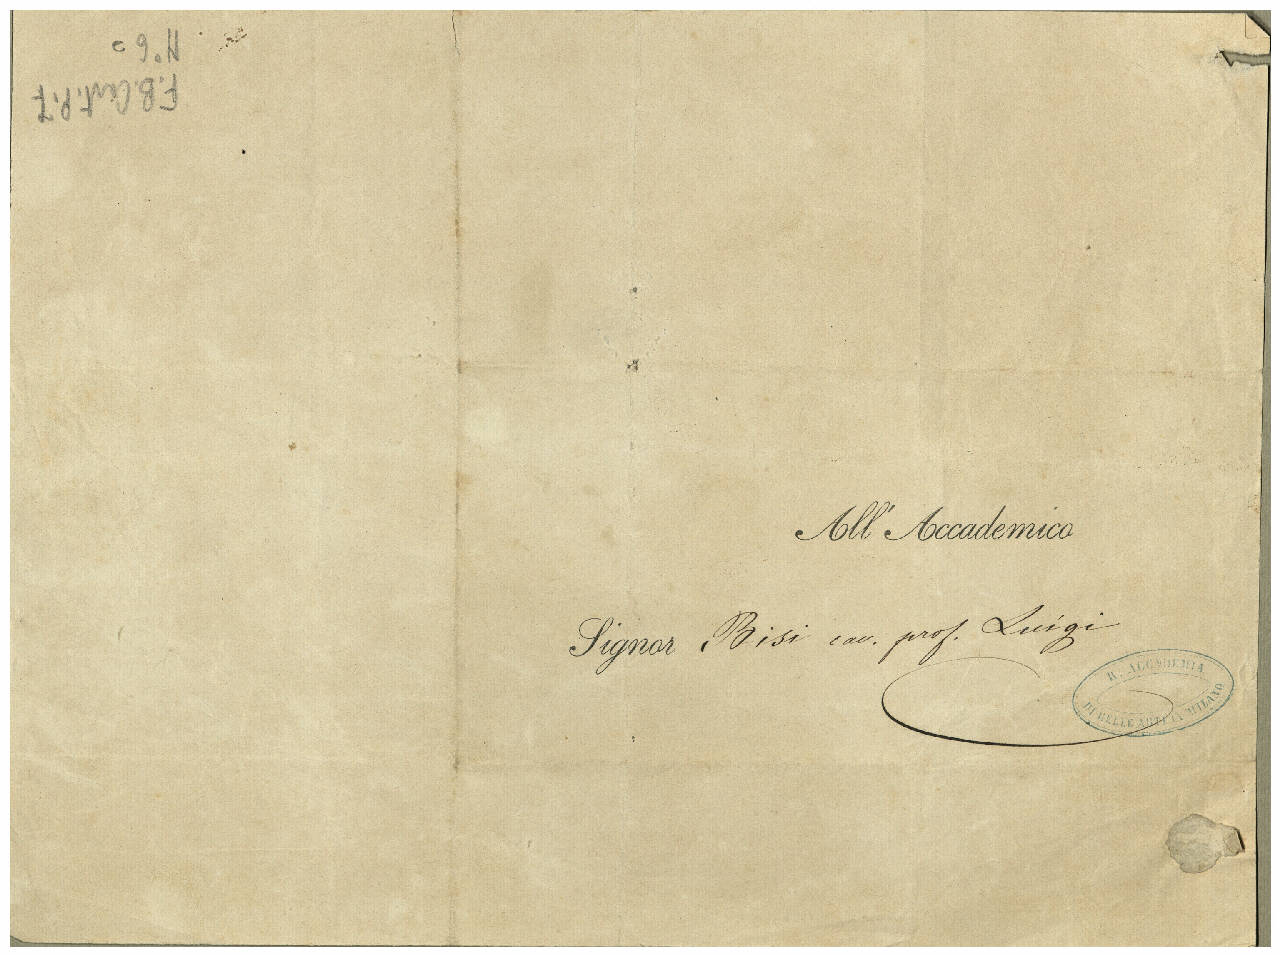 N°6
F.B. Cart. P. I
All' Accademico
Signor Bisi cav. prof. Luigi
R. ACCADEMIA
DI BELLE ARTI IN MILANO